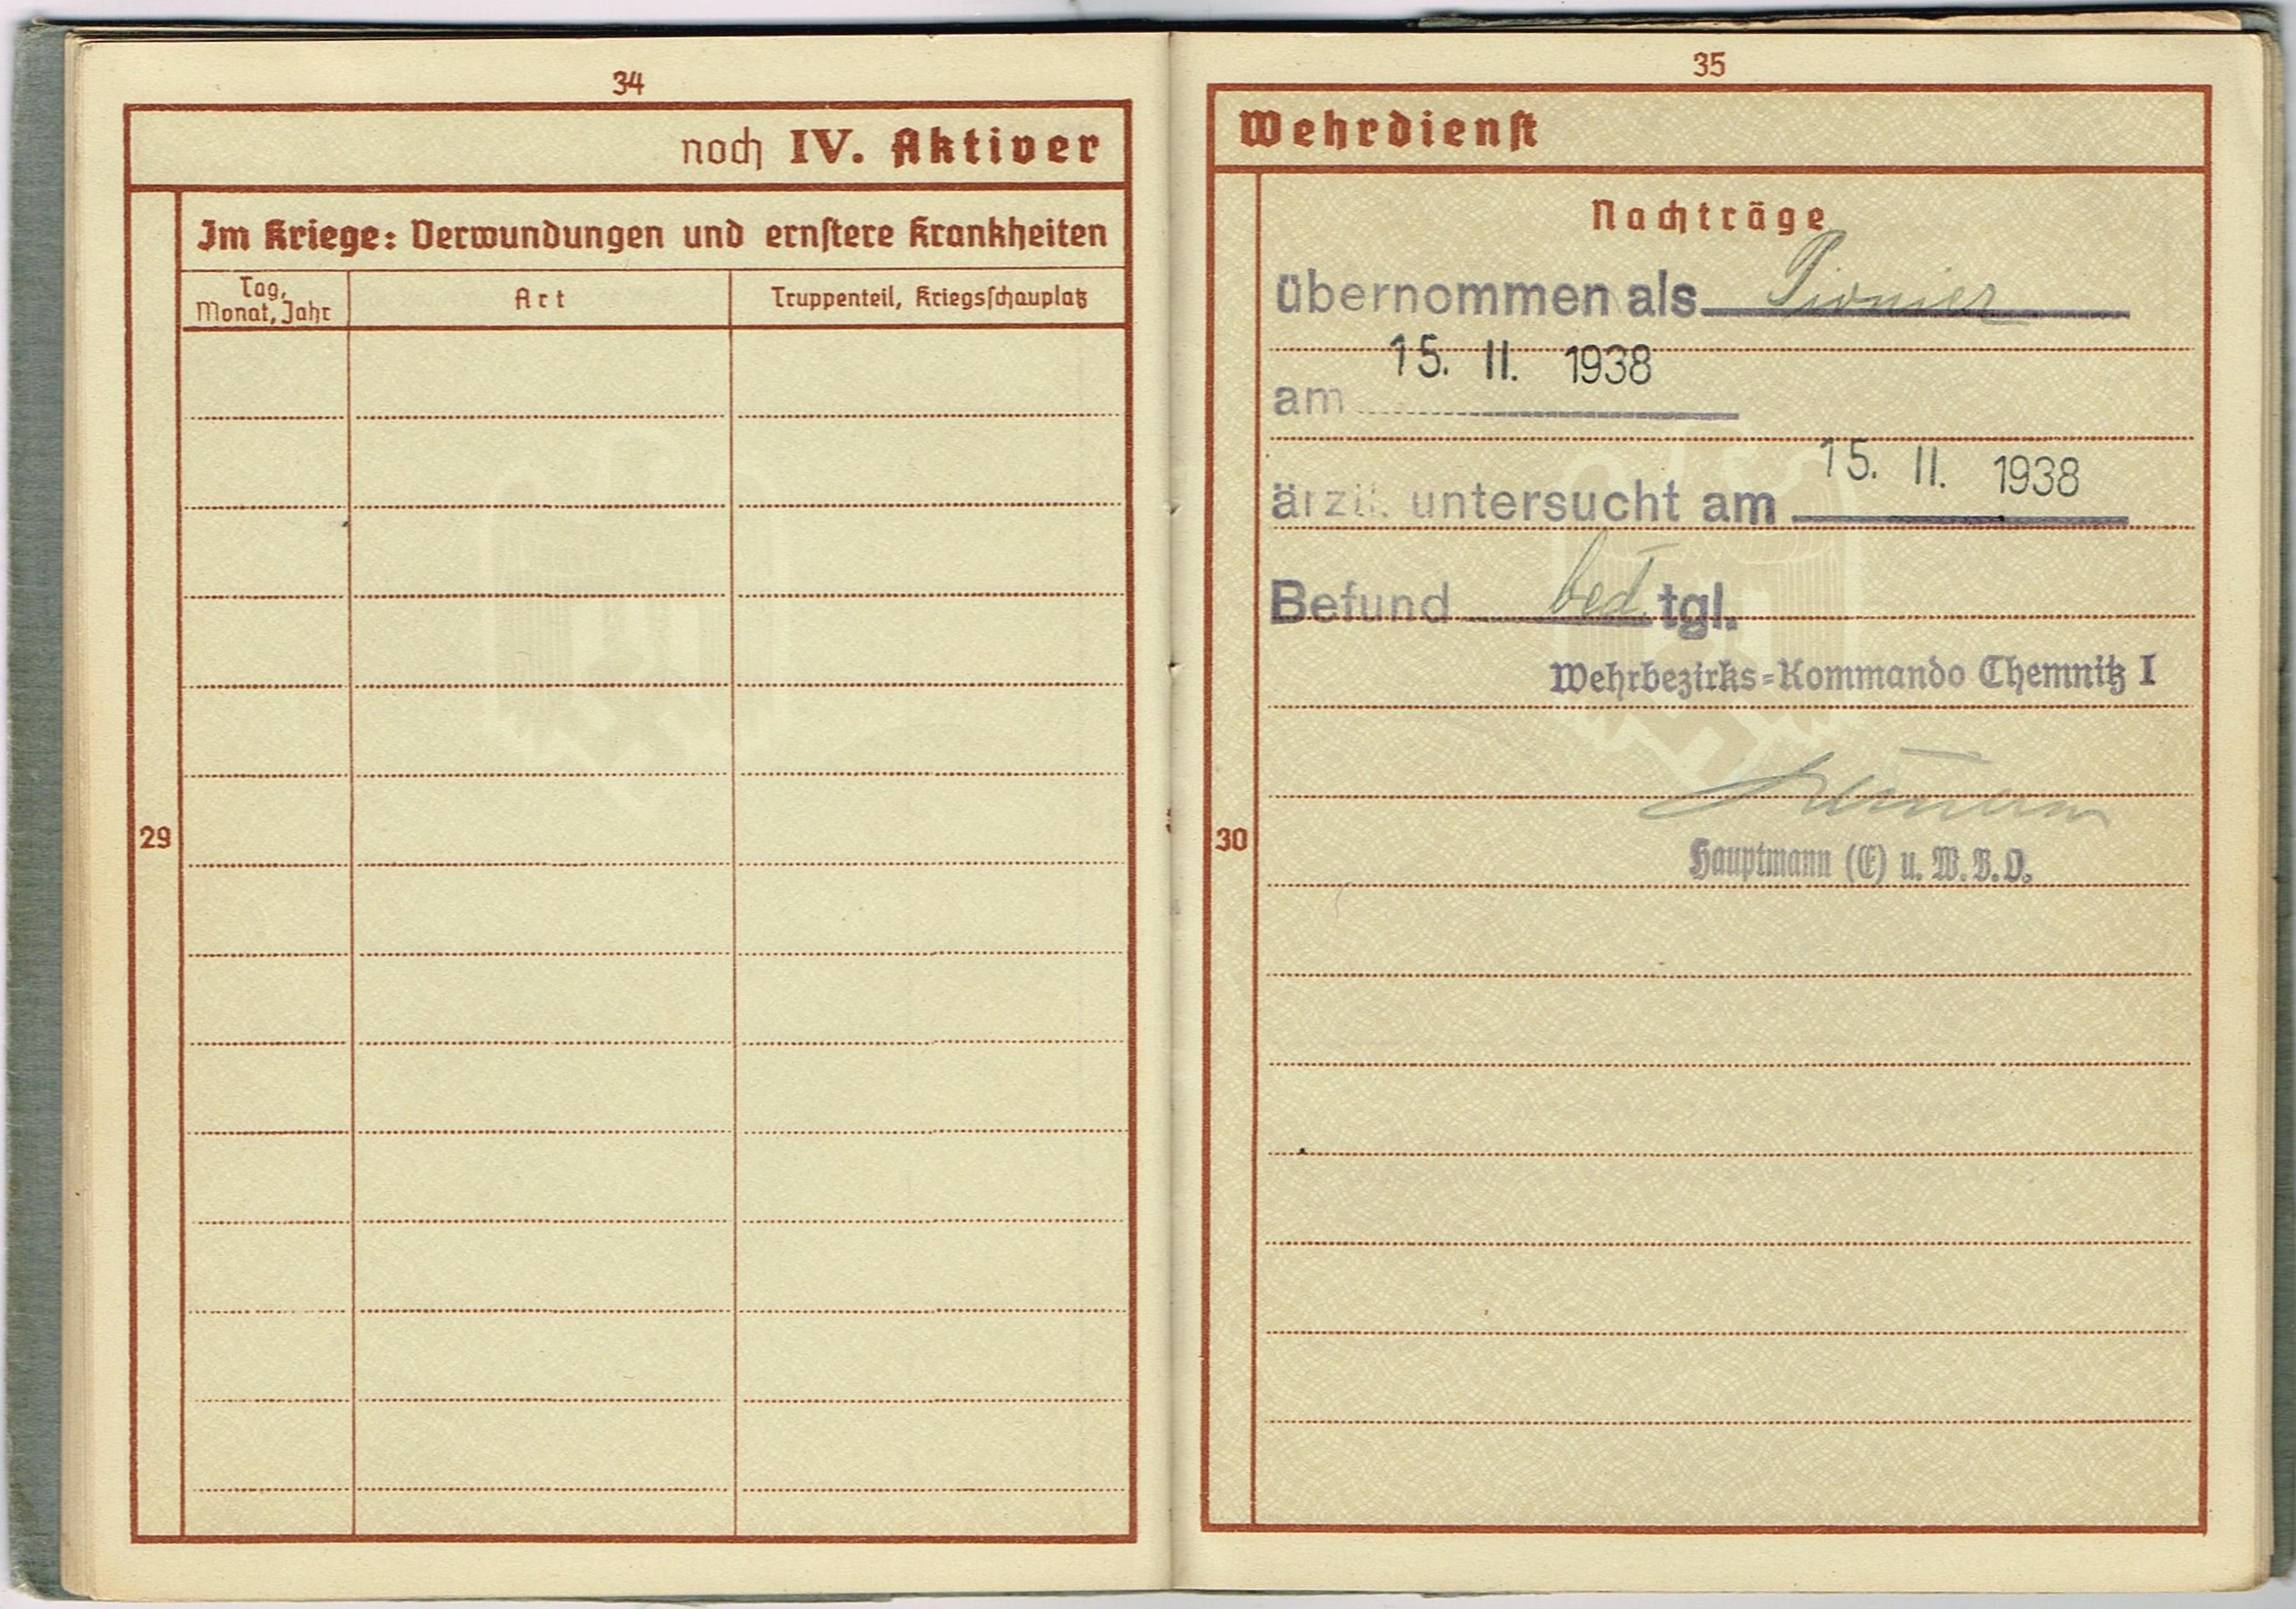 34
noch IV. Aktiver
Im Kriege: Verwundungen und ernstere Krankheiten
Tag,
Monat, Jahr
Art
Truppenteil, Kriegsschauplatz
29
35
Wehrdienst
Nachträge
übernommen als Pionier
15. II. 1938
am
15. II. 1938
ärztl. untersucht am
Befund bed. tgl.
Wehrbezirks-Kommando Chemnitz I
30
Hauptmann (E) u. W.B.O.